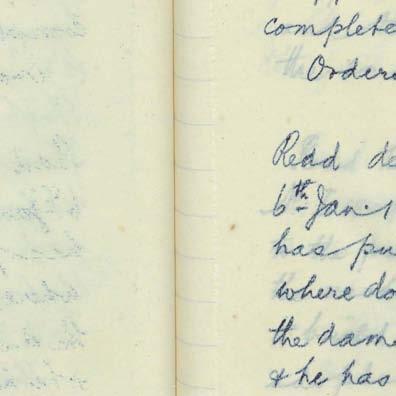 complete
Ordere
Read de
6th Jan. 1
has pu
where do
the dame
& he has